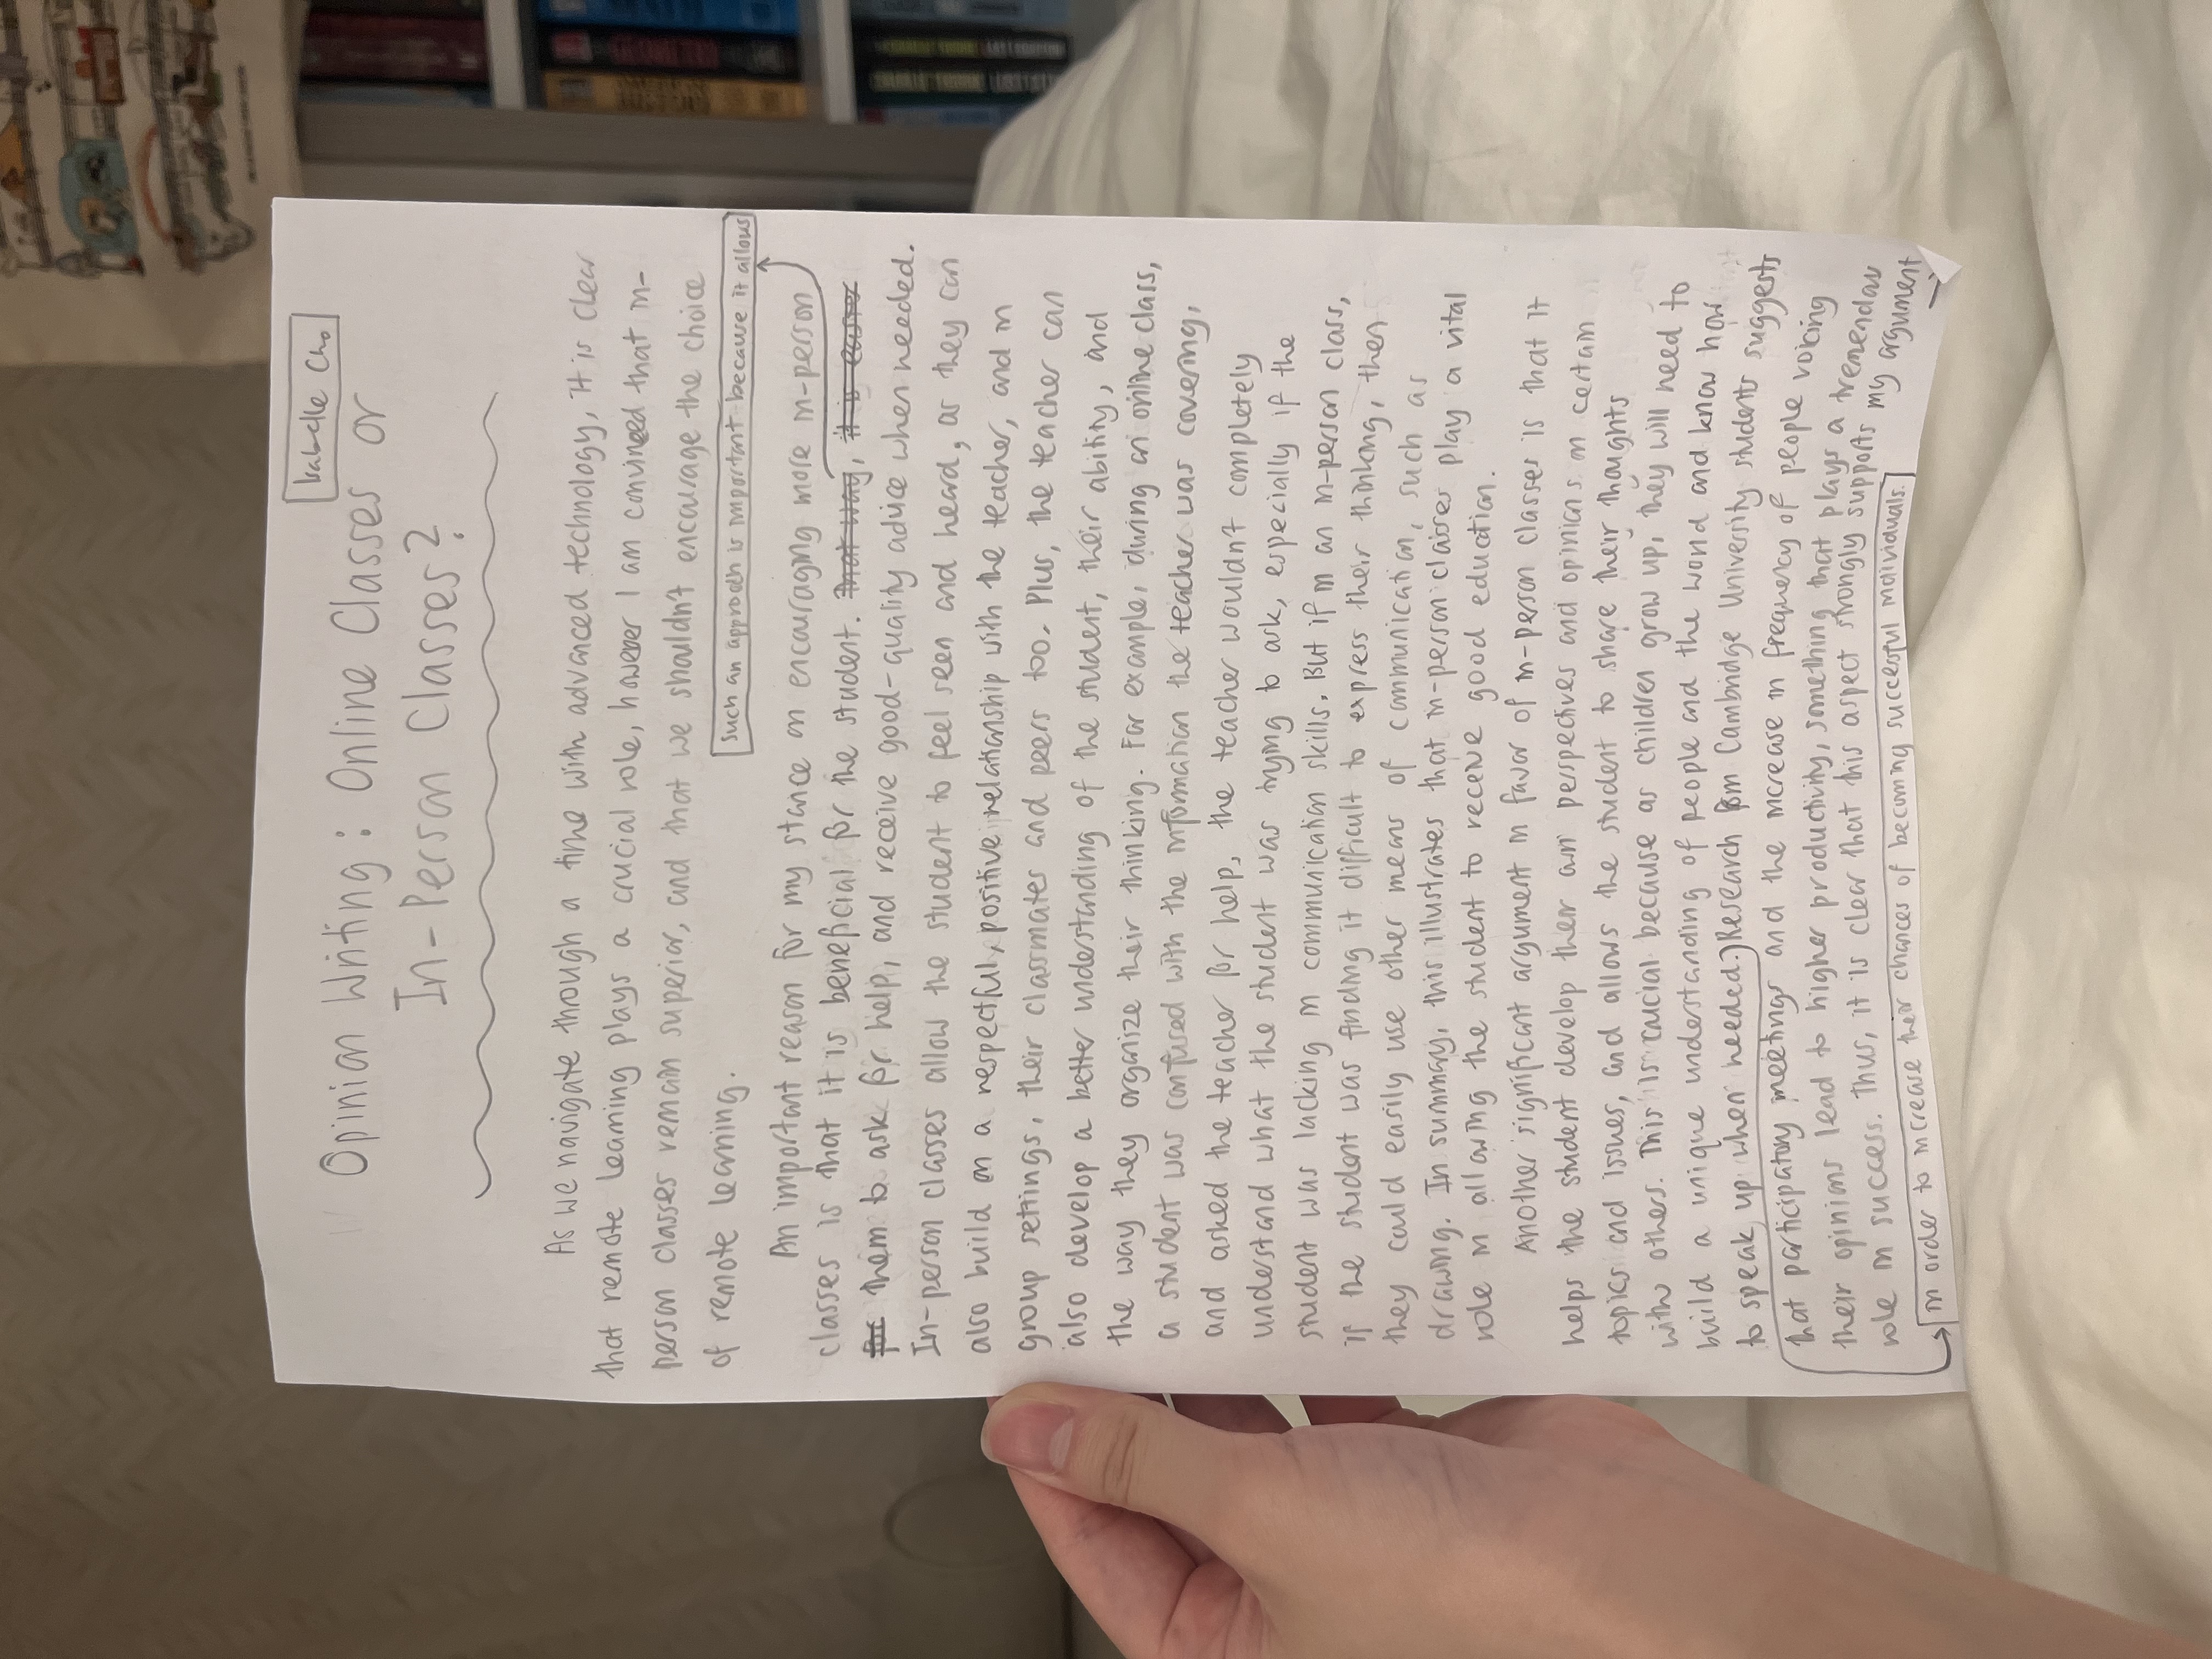 Isabelle Cho
Opinion Writing: Online Classes or
In-Person Classes?
As we navigate through a time with advanced technology, it is clear
that remote learning plays a crucial role, however I am convinced that in-
person classes remain superior, and that we shouldn't encourage the choice
of remote learning.
Such an approach is important because it allows
An important reason for my stance on encouraging more in-person
classes is that it is beneficial for the student. That way, it is easier
for them to ask for help, and receive good-quality advice when needed.
In-person classes allow the student to feel seen and heard, as they can
also build on a respectful, positive relationship with the teacher, and in
group settings, their classmates and peers too. Plus, the teacher can
also develop a better understanding of the student, their ability, and
the way they organize their thinking. For example, during an online class,
a student was confused with the information the teacher was covering,
and asked the teacher for help, the teacher wouldn't completely
understand what the student was trying to ask, especially if the
student was lacking in communication skills. But if in an in-person class,
if the student was finding it difficult to express their thinking, then
they could easily use other means of communication, such as
drawing. In summary, this illustrates that in-person classes play a vital
role in allowing the student to receive good education.
Another significant argument in favor of in-person classes is that it
helps the student develop their own perspectives and opinions on certain
topics and issues, and allows the student to share their thoughts
with others. This is crucial because as children grow up, they will need to
build a unique understanding of people and the world and know how
to speak up when needed. Research from Cambridge University students suggests
that participatory meetings and the increase in frequency of people voicing
their opinions lead to higher productivity, something that plays a tremendous
role in success. Thus, it is clear that this aspect strongly supports my argument
in order to increase their chances of becoming successful individuals.